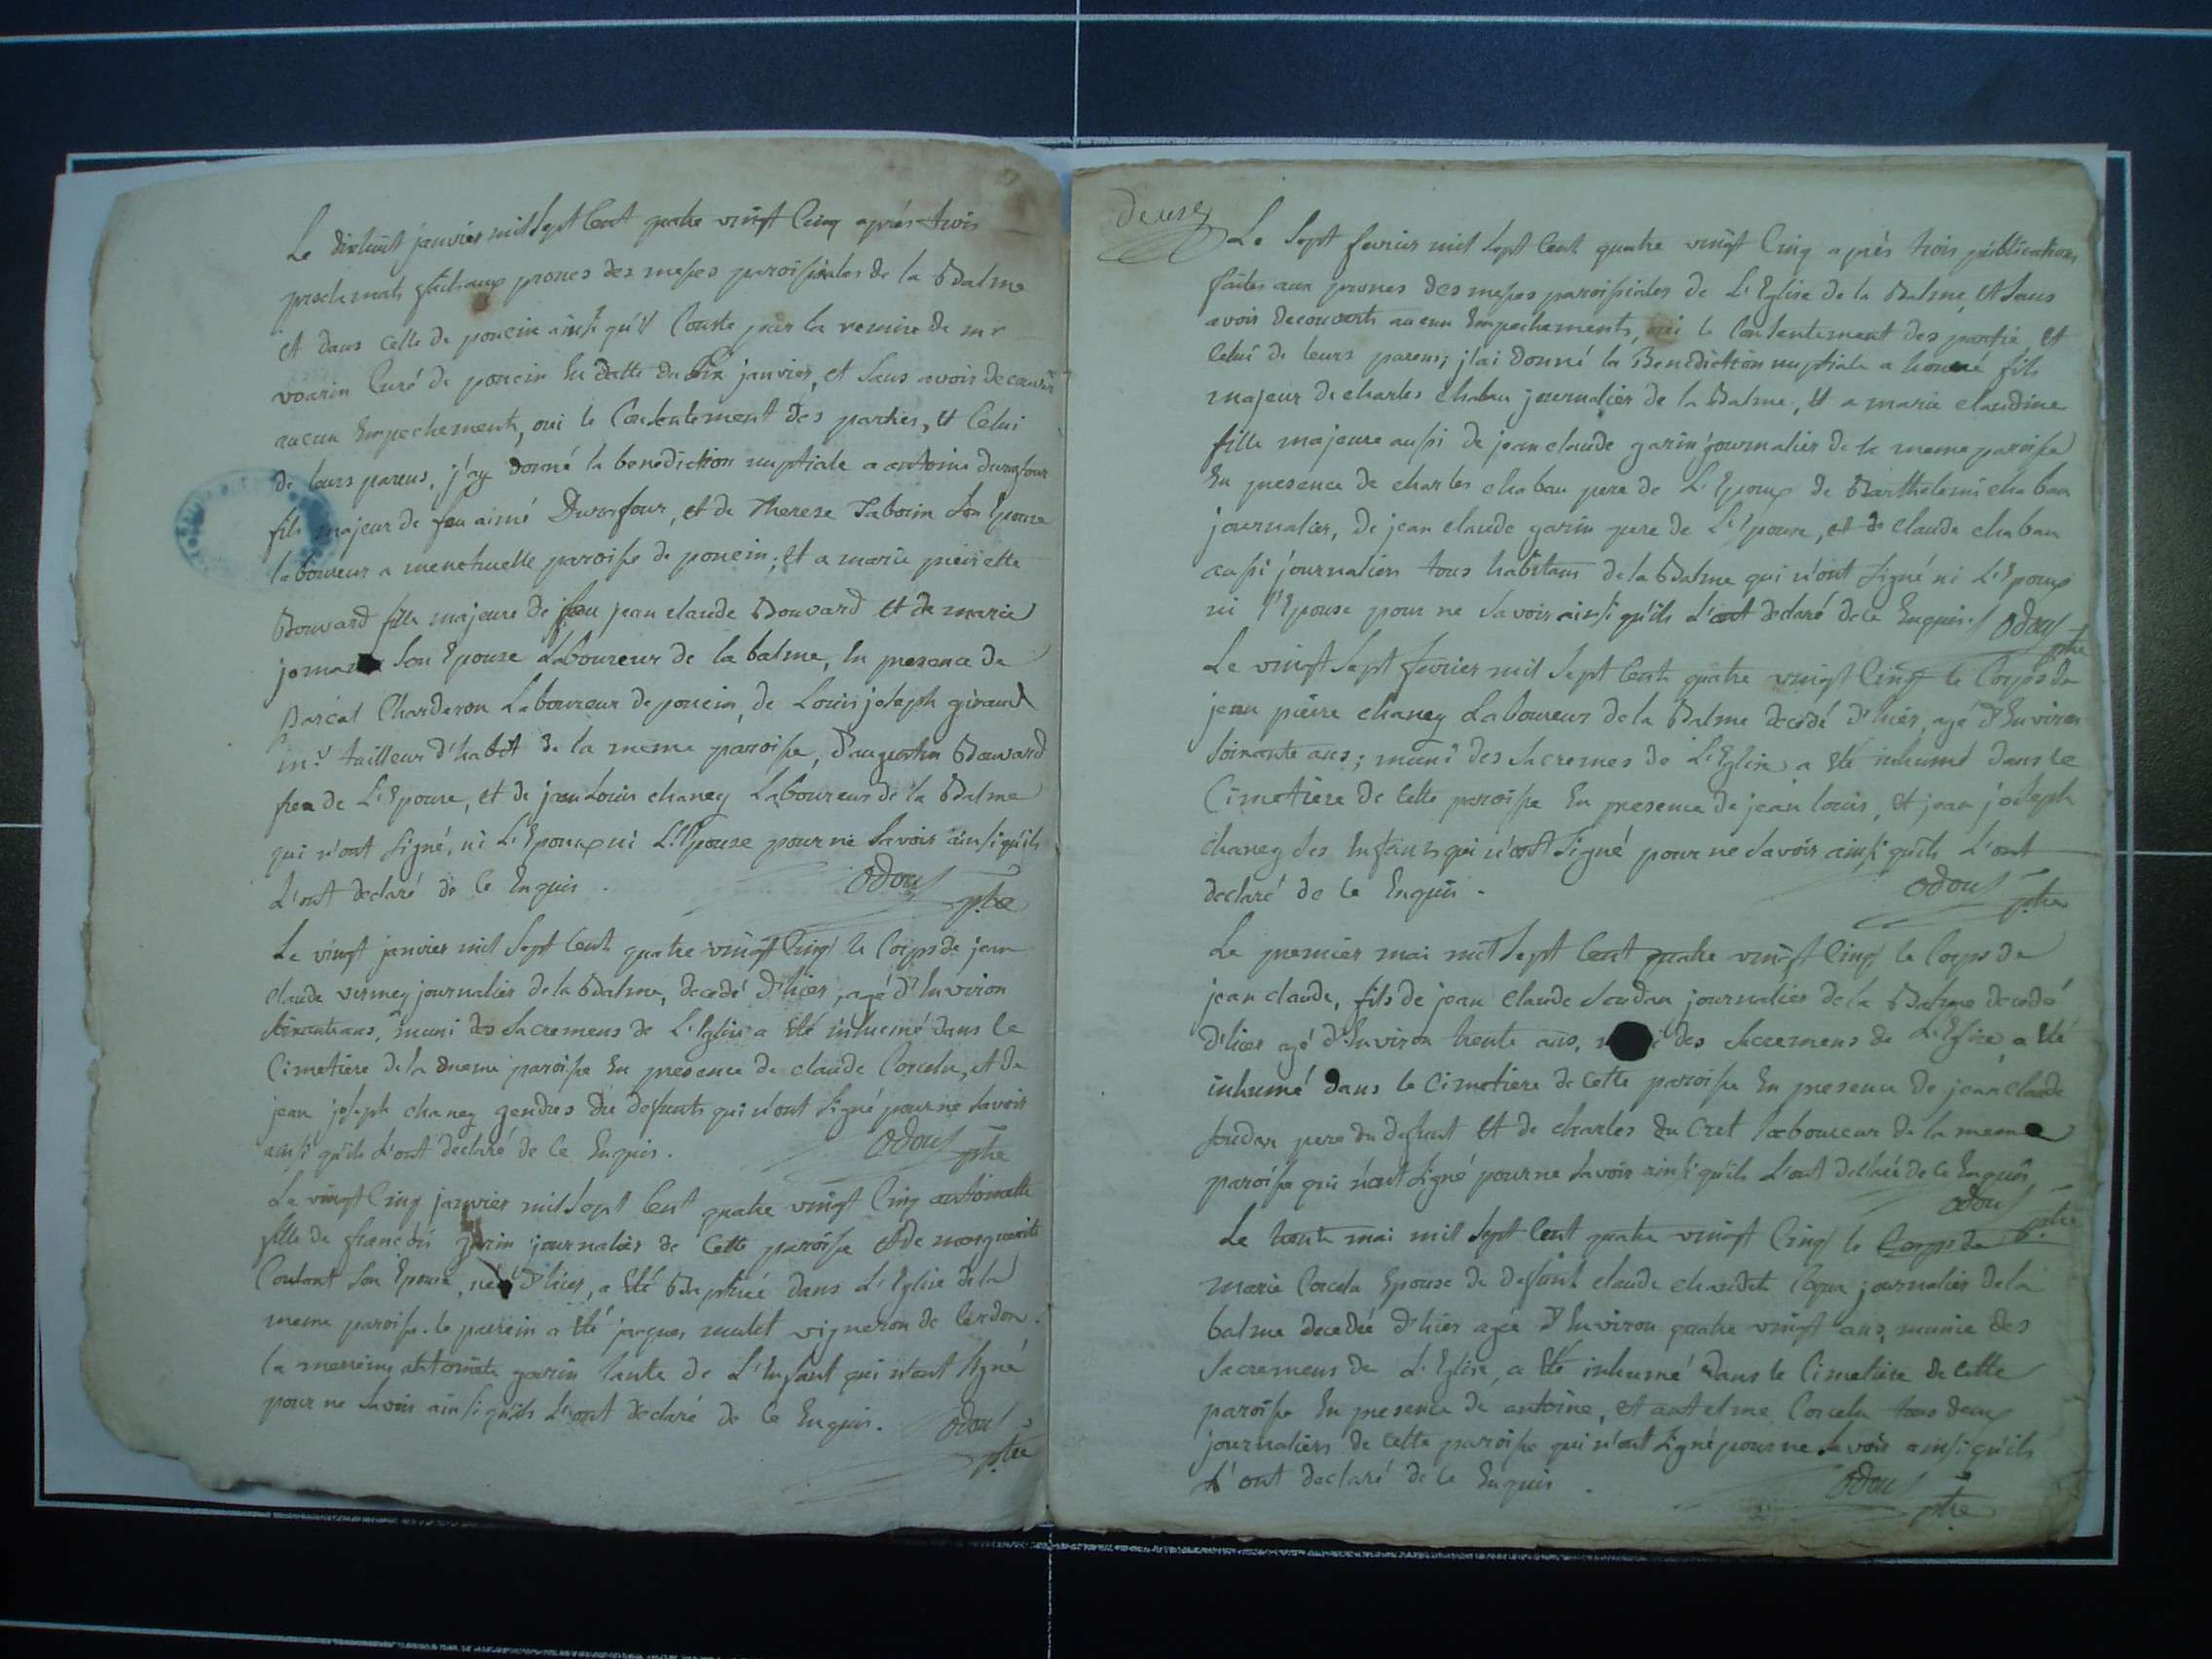 Le dixhuit janvier mil sept cent quatre vingt cinq après trois
proclamats faits aux prones des messes paroissiales de la Balme
et dans celle de poncin ainsi qu'il conste par la remise de mr
voarin curé de poncin en datte du dix janvier, et sans avoir decouvert
aucun Empechements, oui le consentement des parties, et celui
de leurs parens, j'ay donné la benediction nuptiale a antoine durafour
fils majeur de feu aimé Durafour, et de Therese Tabouin son Epouse
laboureur a menetruelle paroisse de poncin; et a marie pierrette
Bouvard fille majeure de feu jean claude Bouvard et de marie
son Epouse Laboureur de la balme, En presence de
pascal Charderon Laboureur de poncin, de Louis joseph giraud
m.e tailleur d'habit de la meme paroisse, d'augustin Bouvard
frere de L'Epouse, et de jean Louis chaney Laboureur de la Balme
qui n'ont signé, ni L'Epoux ni L'Epouse pour ne savoir ainsi qu'ils
L'ont declaré de ce Enquis. Odouf
ptre
Le vingt janvier mil sept cent quatre vingt cinq le corps de jean
claude vermey journalier de la Balme, decedé d'hier, agé d'Environ
soixante ans, muni des sacremens de L'Eglise a Eté inhumé dans le
Cimetiere de la meme paroisse En presence de claude Corcelu, et de
jean joseph chaney gendres du defunts qui n'ont signé pour ne savoir
ainsi qu'ils L'ont declaré de ce Enquis. Odouf ptre
Le vingt cinq janvier mil sept cent quatre vingt cinq antoinette
fille de françois garin journalier de cette paroisse et de marguerite
Coutant son Epouse, née d'hier, a Eté Baptisée dans L'Eglise de la
meme paroisse. le parrein a Eté jacques mulet vigneron de Cerdon.
la marreine antoinette garin tante de L'Enfant qui n'ont signé
pour ne savoir ainsi qu'ils L'ont declaré de ce Enquis. Odouf
ptre
deux
Le sept fevrier mil sept cent quatre vingt cinq après trois publications
faites aux prones des messes paroissiales de L'Eglise de la Balme, et sans
avoir decouverts aucun Empechements, oui le consentement des partie, et
celui de leurs parens; j'ai donné la Benediction nuptiale a honoré fils
majeur de charles chabau journalier de la Balme, et a marie claudine
fille majeure aussi de jean claude garin journalier de la meme paroisse
En presence de charles chabau pere de L'Epoux de Barthelemi chabau
journalier, de jean claude garin pere de L'Epouse, et de claude chabau
aussi journalier tous habitans de la Balme qui n'ont signé ni L'Epoux
ni l'Epouse pour ne savoir ainsi qu'ils L'ont declaré de ce Enquis. Odouf
ptre
Le vingt sept fevrier mil sept cent quatre vingt cinq le corps de
jean pierre chaney Laboureur de la Balme decedé d'hier, agé d'Environ
soixante ans; muni des sacremes de L'Eglise a Eté inhumé dans le
Cimetiere de cette paroisse En presence de jean louis, et jean joseph
chaney ses Enfans qui n'ont signé pour ne savoir ainsi qu'ils L'ont
declaré de ce Enquis. Odouf
ptre
Le premier mai mil sept cent quatre vingt cinq le corps de
jean claude, fils de jean claude soudan journalier de la Balme decedé
d'hier agé d'Environ trente ans, des sacremens de L'Eglise, a Eté
inhumé dans le cimetiere de cette paroisse En presence de jean claude
soudan pere du defunt et de charles du Cret laboureur de la meme
paroisse qui n'ont signé pour ne savoir ainsi qu'ils L'ont declaré de ce Enquis
Odouf ptre
Le trente mai mil sept cent quatre vingt cinq le Corps de
marie Corcelu Epouse de defunt claude journalier de la
balme decedée d'hier agée d'Environ quatre vingt ans, munie des
sacremens de L'Eglise, a Eté inhumé dans le cimetiere de cette
paroisse En presence de antoine, et antelme Corcelu tous deux
journaliers de cette paroisse qui n'ont signé pour ne savoir ainsi qu'ils
L'ont declaré de ce Enquis. Odouf
ptre